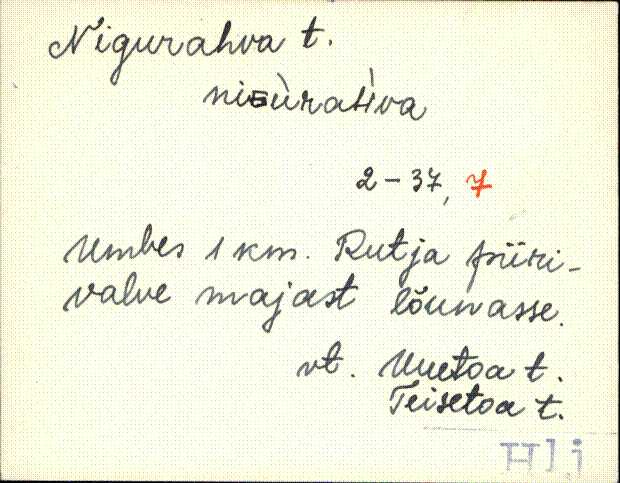 Nigurahva t.
niGùraHìva
2-37, 7
Umbes 1 km. Rutja piiri-
valve majast lõunasse.
vt. Uuetoa t.
Teisetoa t.
Hlj